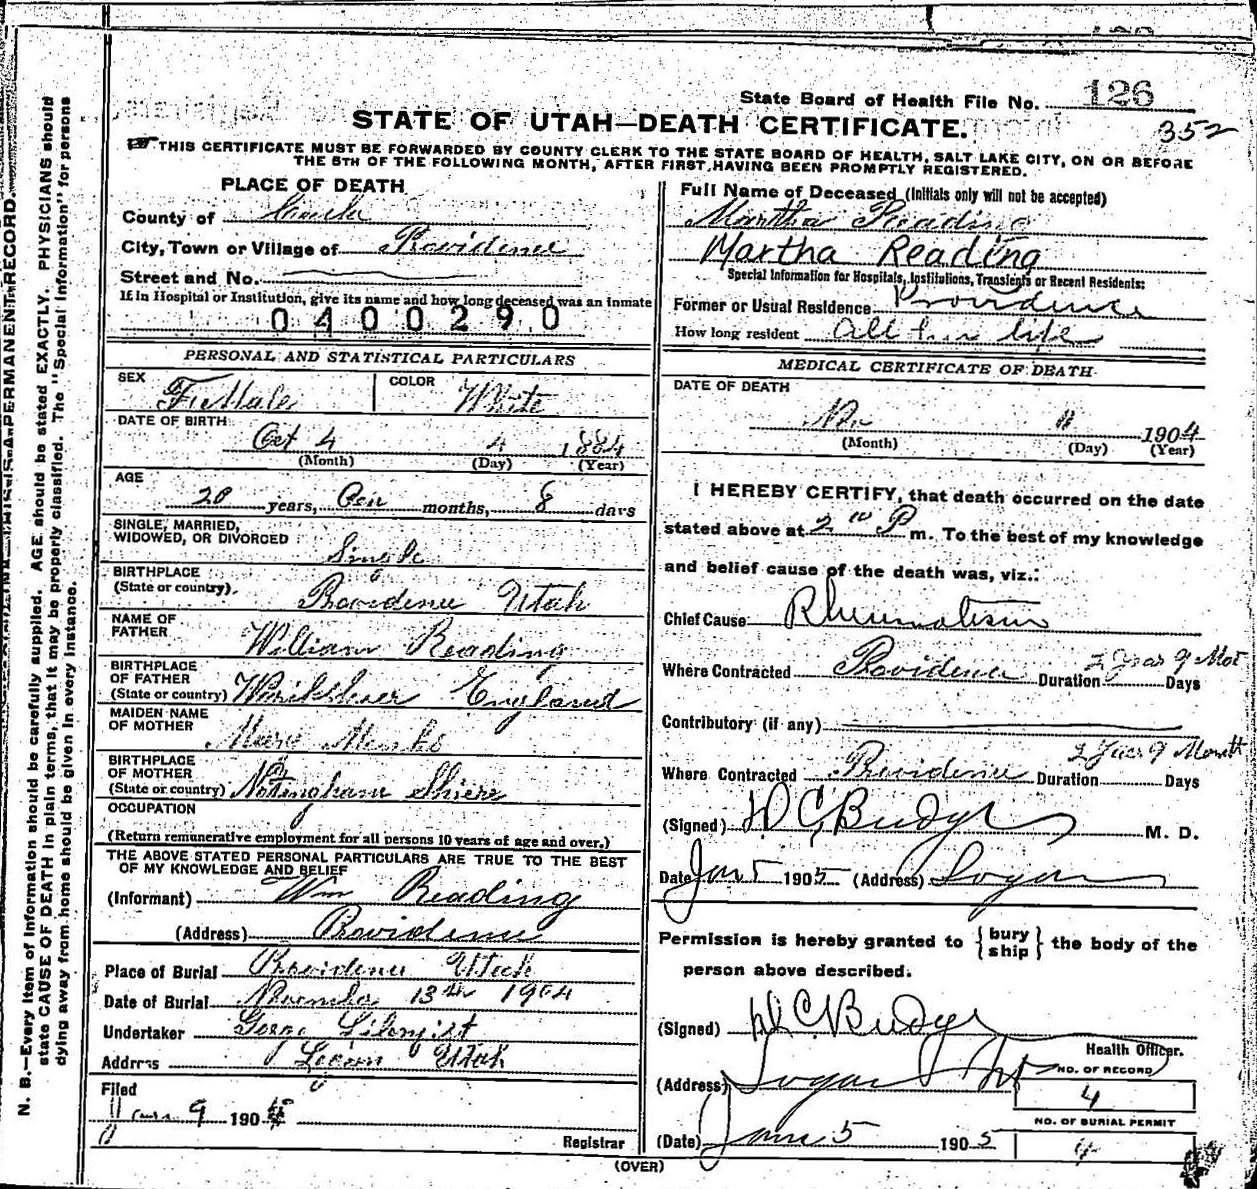 N. B.—Every item of information should be carefully supplied. AGE should be stated EXACTLY. PHYSICIANS should
state CAUSE OF DEATH in plain terms, that it may be properly classified. The "Special Information" for persons
dying away from home should be given in every instance.
State Board of Health File No. 126
352
STATE OF UTAH—DEATH CERTIFICATE.
THIS CERTIFICATE MUST BE FORWARDED BY COUNTY CLERK TO THE STATE BOARD OF HEALTH, SALT LAKE CITY, ON OR BEFORE
THE 5TH OF THE FOLLOWING MONTH, AFTER FIRST HAVING BEEN PROMPTLY REGISTERED.
PLACE OF DEATH
County of
City, Town or Village of Providence
Street and No.
If in Hospital or Institution, give its name and how long deceased was an inmate
0400290
PERSONAL AND STATISTICAL PARTICULARS
SEX FeMale COLOR White
DATE OF BIRTH
Oct 4 4 1884
(Month) (Day) (Year)
AGE
20 years, months, 8 days
SINGLE, MARRIED,
WIDOWED, OR DIVORCED Single
BIRTHPLACE
(State or country). Providence Utah
NAME OF
FATHER William Reading
BIRTHPLACE
OF FATHER
(State or country) England
MAIDEN NAME
OF MOTHER
BIRTHPLACE
OF MOTHER
(State or country) Notingham Shiere
OCCUPATION
(Return remunerative employment for all persons 10 years of age and over.)
THE ABOVE STATED PERSONAL PARTICULARS ARE TRUE TO THE BEST
OF MY KNOWLEDGE AND BELIEF
(Informant) Wm Reading
(Address) Providence
Place of Burial Providence Utah
Date of Burial 13th 1904
Undertaker
Address Logan Utah
Filed
9 190
Registrar
Full Name of Deceased (Initials only will not be accepted)
Martha Reading
Martha Reading
Special Information for Hospitals, Institutions, Transients or Recent Residents:
Former or Usual Residence Providence
How long resident all her life
MEDICAL CERTIFICATE OF DEATH
DATE OF DEATH
11 1904
(Month) (Day) (Year)
I HEREBY CERTIFY, that death occurred on the date
stated above at 2 P m. To the best of my knowledge
and belief cause of the death was, viz.:
Chief Cause: Rheumatism
Where Contracted Providence Duration 2 Years 9 Mos Days
Contributory (if any)
Where Contracted Providence Duration 2 Years 9 Month Days
(Signed) D C Budge M. D.
Date Jan 5 1905 (Address) Logan
Permission is hereby granted to {bury ship} the body of the
person above described.
(Signed) D C Budge
Health Officer.
(Address) Logan
NO. OF RECORD
4
NO. OF BURIAL PERMIT
4
(Date) 5 1905
(OVER)